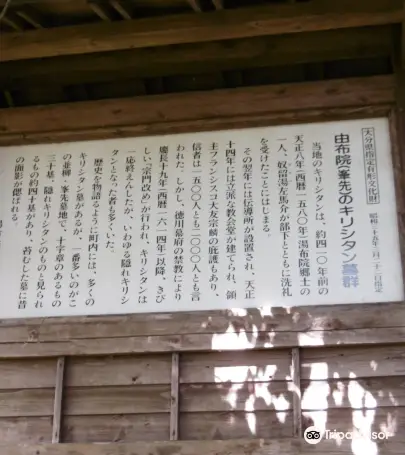 大分県指定有形文化財
由布院峯先のキリシタン墓群
当地のキリシタンは、約四一〇年前の
天正八年（西暦一五八〇年）湯布院郷士の
一人、奴留湯左馬介が部下とともに洗礼
を受けたことにはじまる。
その翌年には伝導所が設置され、天正
十四年には立派な教会堂が建てられ、領
主フランシスコ大友宗麟の庇護もあり、
信者は一五〇〇人とも二〇〇〇人とも言
われた。しかし、徳川幕府の禁教により
慶長十九年（西暦一六一四年）以降、きび
しい「宗門改め」が行われ、キリシタンは
一応終えんしたが、いわゆる隠れキリシ
タンとなった者も多くいた。
歴史を物語るように町内には、多くの
キリシタン墓があるが、一番多いのがこ
の並柳・峯先墓地で、十字章のあるもの
三十基、隠れキリシタンのものと見られ
るもの約四十基があり、苔むした墓に昔
の面影が偲ばれる。
Tripadvisor